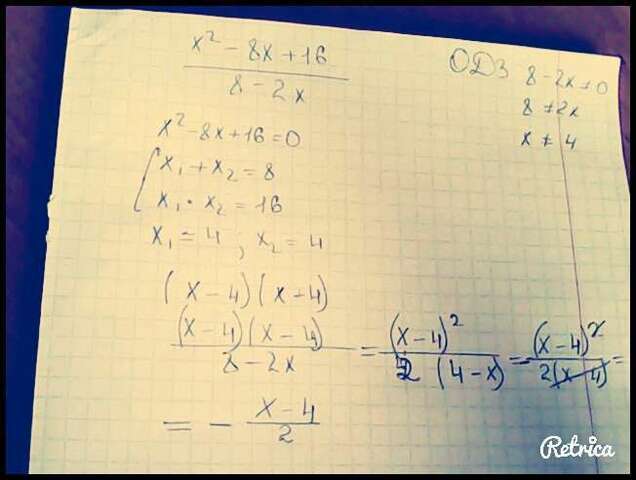 x² - 8x + 16
8 - 2x
ОДЗ 8 - 2x ≠ 0
8 ≠ 2x
x ≠ 4
x² - 8x + 16 = 0
x₁ + x₂ = 8
x₁ · x₂ = 16
x₁ = 4 ; x₂ = 4
(x - 4)(x - 4)
(x - 4)(x - 4) / 8 - 2x = (x - 4)² / 2 (4 - x) = (x - 4)² / 2(x - 4) =
= - x - 4 / 2
Retrica